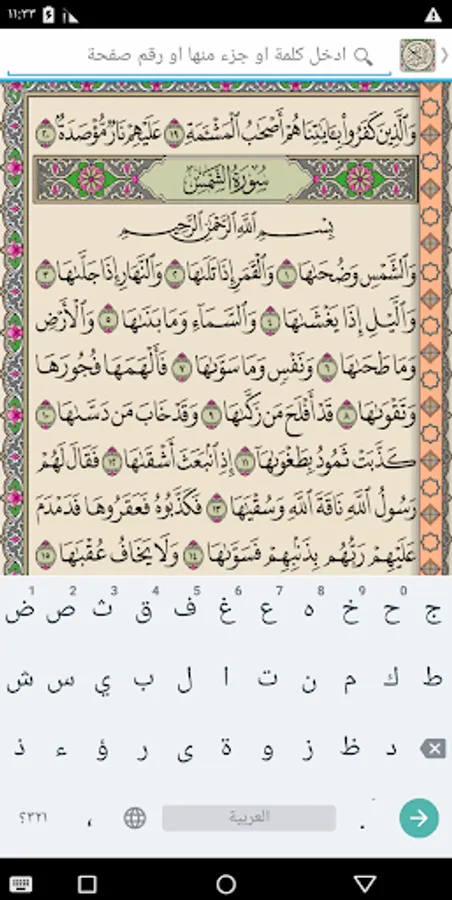 ١١:٢٣
ادخل كلمة او جزء منها او رقم صفحة
وَالَّذِينَ كَفَرُوا۟ بِـَٔايَٰتِنَا هُمْ أَصْحَٰبُ الْمَشْـَٔمَةِ ١٩ عَلَيْهِمْ نَارٌ مُّؤْصَدَةٌۢ ٢٠
سُورَةُ الشَّمْسِ
بِسْمِ اللَّهِ الرَّحْمَٰنِ الرَّحِيمِ
وَالشَّمْسِ وَضُحَىٰهَا ١ وَالْقَمَرِ إِذَا تَلَىٰهَا ٢ وَالنَّهَارِ إِذَا جَلَّىٰهَا ٣
وَالَّيْلِ إِذَا يَغْشَىٰهَا ٤ وَالسَّمَآءِ وَمَا بَنَىٰهَا ٥ وَالْأَرْضِ
وَمَا طَحَىٰهَا ٦ وَنَفْسٍ وَمَا سَوَّىٰهَا ٧ فَأَلْهَمَهَا فُجُورَهَا
وَتَقْوَىٰهَا ٨ قَدْ أَفْلَحَ مَن زَكَّىٰهَا ٩ وَقَدْ خَابَ مَن دَسَّىٰهَا ١٠
كَذَّبَتْ ثَمُودُ بِطَغْوَىٰهَآ ١١ إِذِ انۢبَعَثَ أَشْقَىٰهَا ١٢ فَقَالَ لَهُمْ
رَسُولُ اللَّهِ نَاقَةَ اللَّهِ وَسُقْيَٰهَا ١٣ فَكَذَّبُوهُ فَعَقَرُوهَا فَدَمْدَمَ
عَلَيْهِمْ رَبُّهُم بِذَنۢبِهِمْ فَسَوَّىٰهَا ١٤ وَلَا يَخَافُ عُقْبَٰهَا ١٥
1 2 3 4 5 6 7 8 9 0
ج ح خ ه ع غ ف ق ث ص ض
ط ك م ن ت ا ل ب ي س ش
د ظ ز و ة ى ر ؤ ء ذ
. العربية ، ٣٢١؟